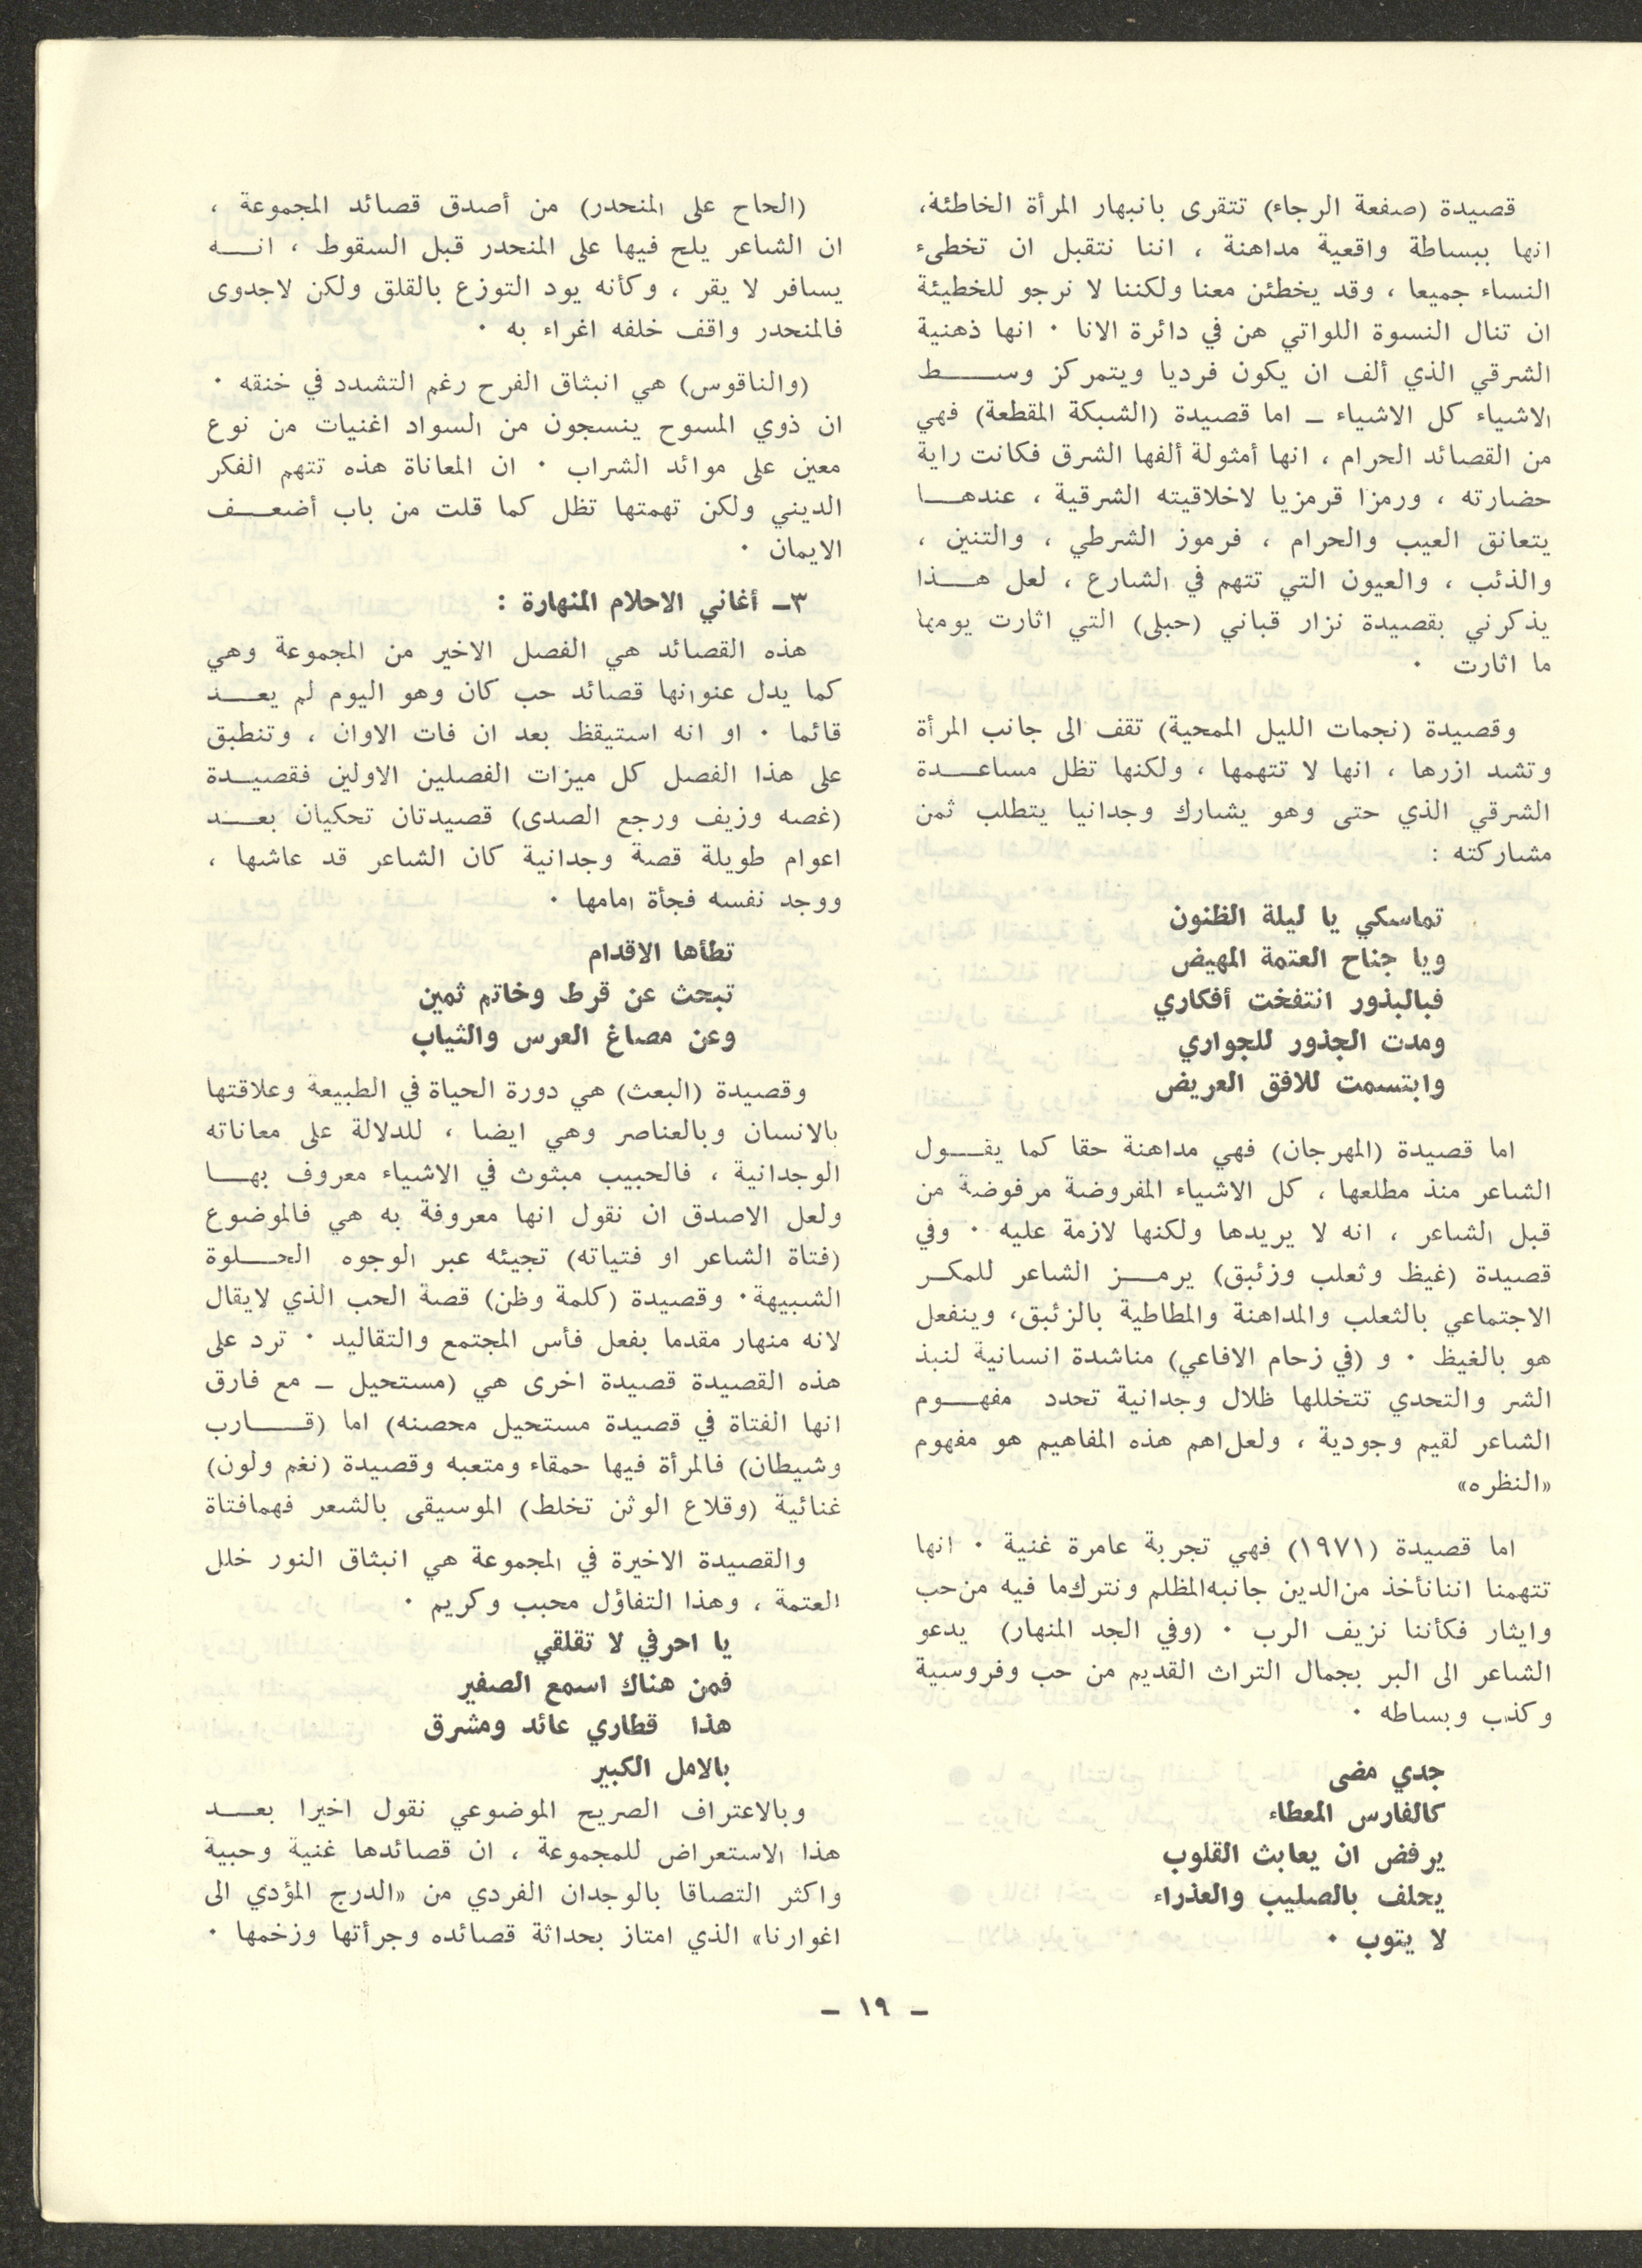 قصيدة (صفعة الرجاء) تتقرى بانبهار المرأة الخاطئة،
انها ببساطة واقعية مداهنة ، اننا نتقبل ان تخطىء
النساء جميعا ، وقد يخطئن معنا ولكننا لا نرجو للخطيئة
ان تنال النسوة اللواتي هن في دائرة الانا ٠ انها ذهنية
الشرقي الذي ألف ان يكون فرديا ويتمركز وسط
الاشياء كل الاشياء ــ اما قصيدة (الشبكة المقطعة) فهي
من القصائد الحرام ، انها أمثولة ألفها الشرق فكانت راية
حضارته ، ورمزا قرمزيا لاخلاقيته الشرقية ، عندها
يتعانق العيب والحرام ، فرموز الشرطي ، والتنين ،
والذئب ، والعيون التي تتهم في الشارع ، لعل هذا
يذكرني بقصيدة نزار قباني (حبلى) التي اثارت يومها
ما اثارت ٠
وقصيدة (نجمات الليل الممحية) تقف الى جانب المرأة
وتشد ازرها ، انها لا تتهمها ، ولكنها تظل مساعدة
الشرقي الذي حتى وهو يشارك وجدانيا يتطلب ثمن
مشاركته :
تماسكي يا ليلة الظنون
ويا جناح العتمة المهيض
فبالبذور انتفخت أفكاري
ومدت الجذور للجواري
وابتسمت للافق العريض
اما قصيدة (المهرجان) فهي مداهنة حقا كما يقول
الشاعر منذ مطلعها ، كل الاشياء المفروضة مرفوضة من
قبل الشاعر ، انه لا يريدها ولكنها لازمة عليه ٠ وفي
قصيدة (غيظ وثعلب وزئبق) يرمز الشاعر للمكر
الاجتماعي بالثعلب والمداهنة والمطاطية بالزئبق، وينفعل
هو بالغيظ ٠ و (في زحام الافاعي) مناشدة انسانية لنبذ
الشر والتحدي تتخللها ظلال وجدانية تحدد مفهوم
الشاعر لقيم وجودية ، ولعل اهم هذه المفاهيم هو مفهوم
«النظره»
اما قصيدة (١٩٧١) فهي تجربة عامرة غنية ٠ انها
تتهمنا اننا نأخذ من الدين جانبه المظلم ونترك ما فيه من حب
وايثار فكأننا نزيف الرب ٠ (وفي الجد المنهار) يدعو
الشاعر الى البر بجمال التراث القديم من حب وفروسية
وكذب وبساطه ٠
جدي مضى
كالفارس المعطاء
يرفض ان يعابث القلوب
يحلف بالصليب والعذراء
لا يتوب ٠
(الحاح على المنحدر) من أصدق قصائد المجموعة ،
ان الشاعر يلح فيها على المنحدر قبل السقوط ، انه
يسافر لا يقر ، وكأنه يود التوزع بالقلق ولكن لاجدوى
فالمنحدر واقف خلفه اغراء به ٠
(والناقوس) هي انبثاق الفرح رغم التشدد في خنقه ٠
ان ذوي المسوح ينسجون من السواد اغنيات من نوع
معين على موائد الشراب ٠ ان المعاناة هذه تتهم الفكر
الديني ولكن تهمتها تظل كما قلت من باب أضعف
الايمان ٠
٣ــ أغاني الاحلام المنهارة :
هذه القصائد هي الفصل الاخير من المجموعة وهي
كما يدل عنوانها قصائد حب كان وهو اليوم لم يعد
قائما ٠ او انه استيقظ بعد ان فات الاوان ، وتنطبق
على هذا الفصل كل ميزات الفصلين الاولين فقصيدة
(غصه وزيف ورجع الصدى) قصيدتان تحكيان بعد
اعوام طويلة قصة وجدانية كان الشاعر قد عاشها ،
ووجد نفسه فجأة امامها ٠
تطأها الاقدام
تبحث عن قرط وخاتم ثمين
وعن مصاغ العرس والثياب
وقصيدة (البعث) هي دورة الحياة في الطبيعة وعلاقتها
بالانسان وبالعناصر وهي ايضا ، للدلالة على معاناته
الوجدانية ، فالحبيب مبثوث في الاشياء معروف بها
ولعل الاصدق ان نقول انها معروفة به هي فالموضوع
(فتاة الشاعر او فتياته) تجيئه عبر الوجوه الحلوة
الشبيهة٠ وقصيدة (كلمة وظن) قصة الحب الذي لايقال
لانه منهار مقدما بفعل فأس المجتمع والتقاليد ٠ ترد على
هذه القصيدة قصيدة اخرى هي (مستحيل ــ مع فارق
انها الفتاة في قصيدة مستحيل محصنه) اما (قارب
وشيطان) فالمرأة فيها حمقاء ومتعبه وقصيدة (نغم ولون)
غنائية (وقلاع الوثن تخلط) الموسيقى بالشعر فهمافتاة
والقصيدة الاخيرة في المجموعة هي انبثاق النور خلل
العتمة ، وهذا التفاؤل محبب وكريم ٠
يا احرفي لا تقلقي
فمن هناك اسمع الصفير
هذا قطاري عائد ومشرق
بالامل الكبير
وبالاعتراف الصريح الموضوعي نقول اخيرا بعد
هذا الاستعراض للمجموعة ، ان قصائدها غنية وحبية
واكثر التصاقا بالوجدان الفردي من «الدرج المؤدي الى
اغوارنا» الذي امتاز بحداثة قصائده وجرأتها وزخمها ٠
ــ ١٩ ــ